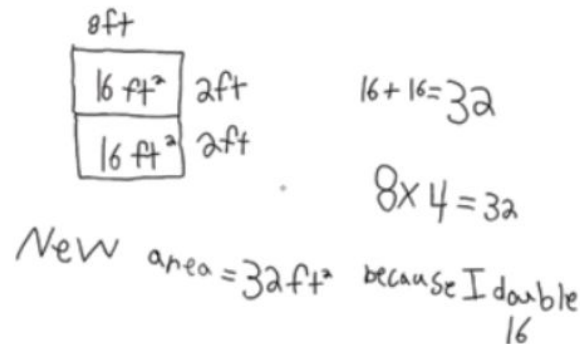 8ft
16 ft² 2ft
16 ft² 2ft
16+16=32
8x4=32
New area=32ft² because I double
16